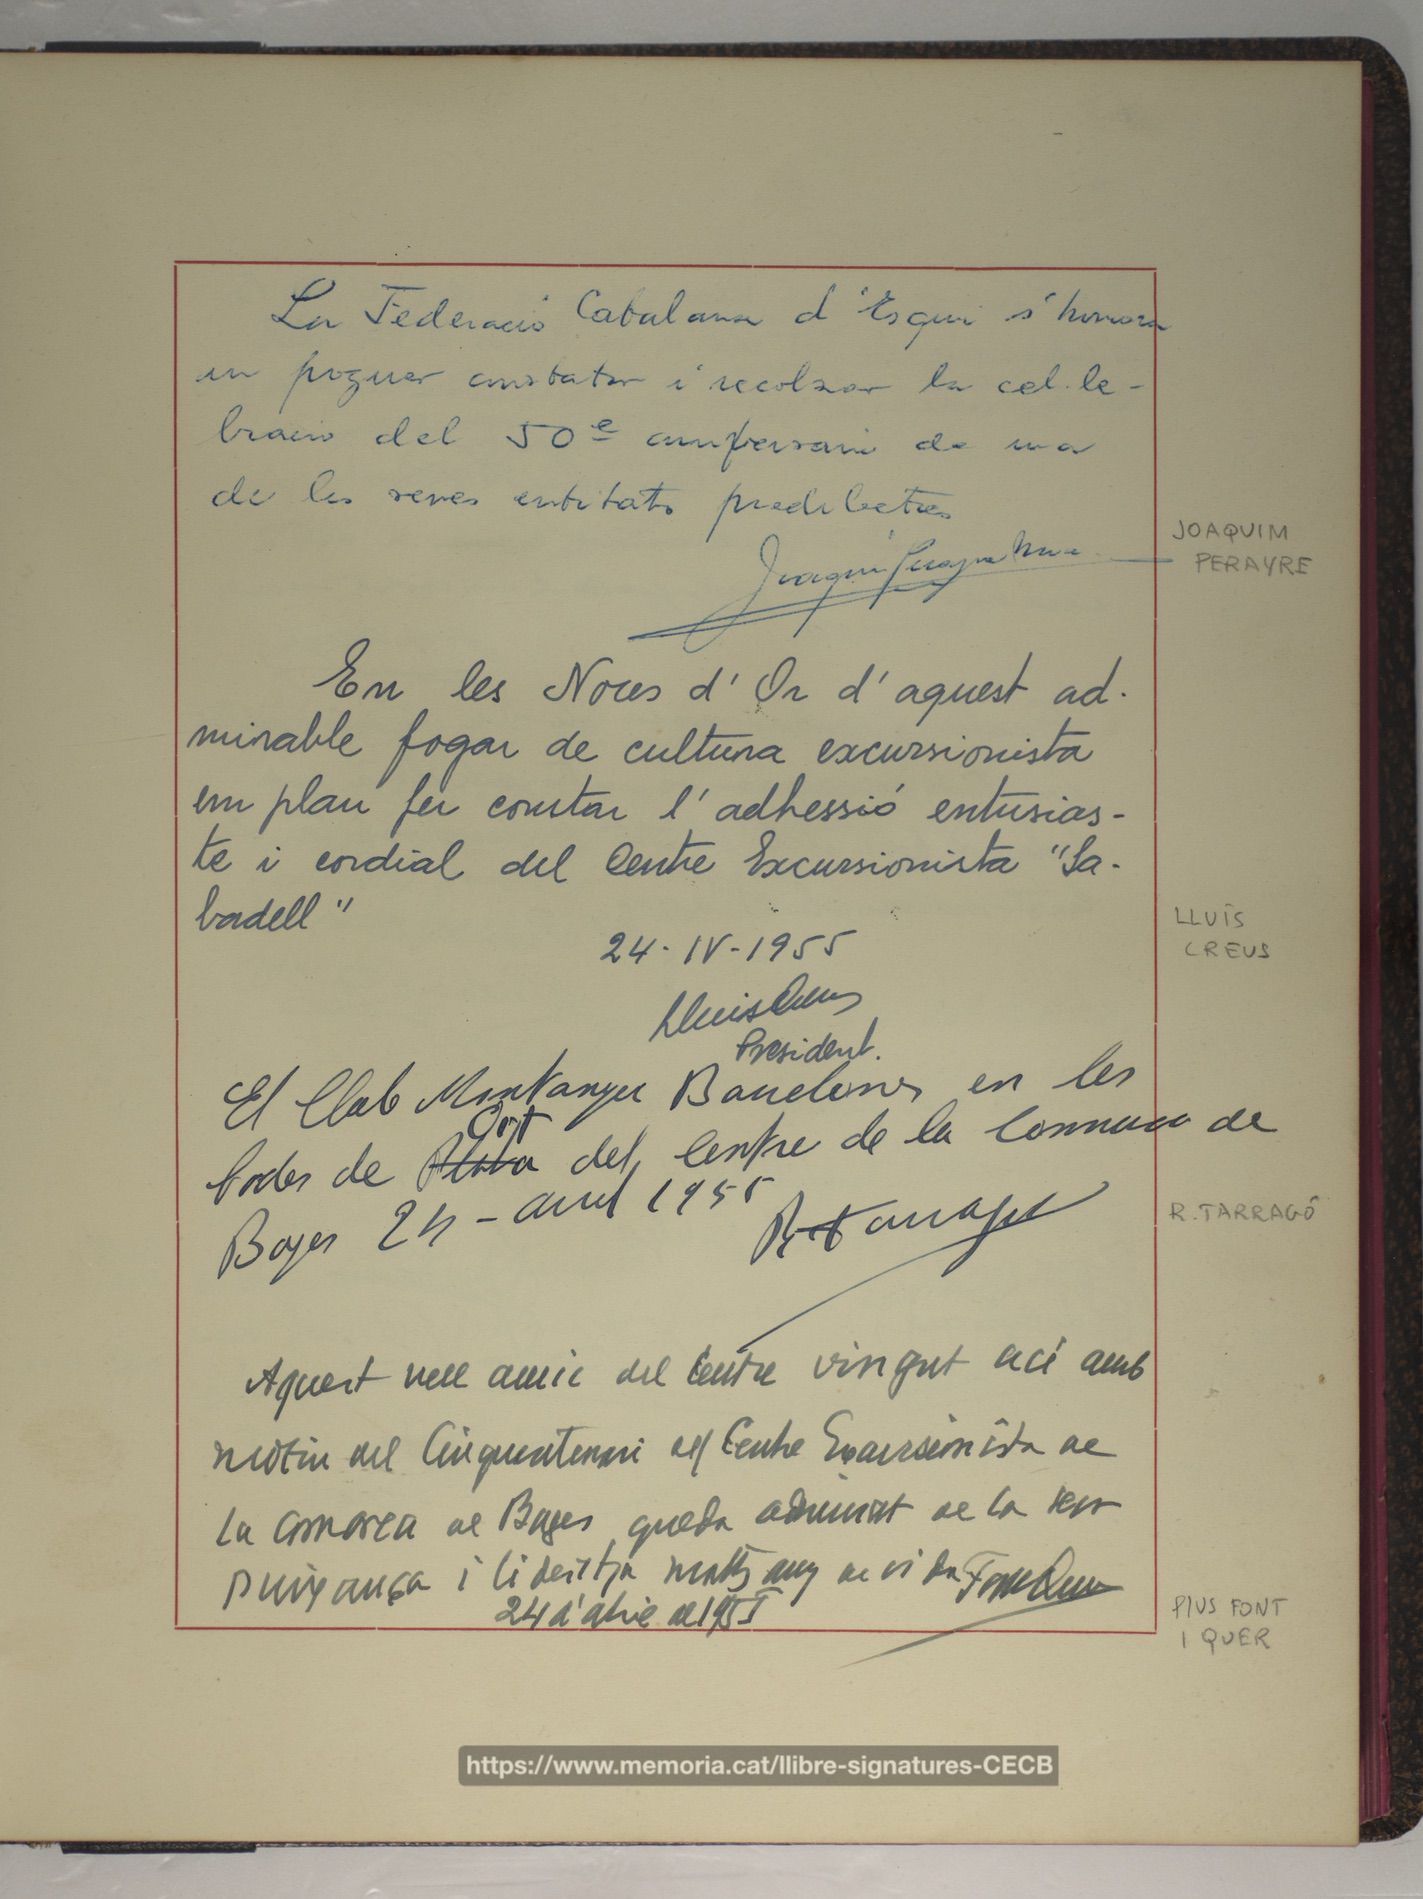 La Federació Catalana d'Esqui s'honora
en poguer constatar i recolzar la cel·le-
bració del 50e aniversari de una
de les seves entitats predilectes
Joaquim Perayre
JOAQUIM
PERAYRE
En les Noces d'Or d'aquest ad-
mirable fogar de cultura excursionista
em plau fer constar l'adhessió entusias-
te i cordial del Centre Excursionista "Sa-
badell"
24-IV-1955
Lluis Creus
President.
LLUÍS
CREUS
El Club Muntanyec Barcelones en les
Or
bodes de Plata del Centre de la Comarca de
Bages 24 - avril 1955
R. Tarrago
R. TARRAGÓ
Aquest vell amic del Centre vingut ací amb
motiu del Cinquantenari del Centre Excursionista de
la comarca de Bages queda admirat de la seva
puixança i li desitja molts anys de vida Font Quer
24 d'abril de 1955
PIUS FONT
I QUER
https://www.memoria.cat/llibre-signatures-CECB